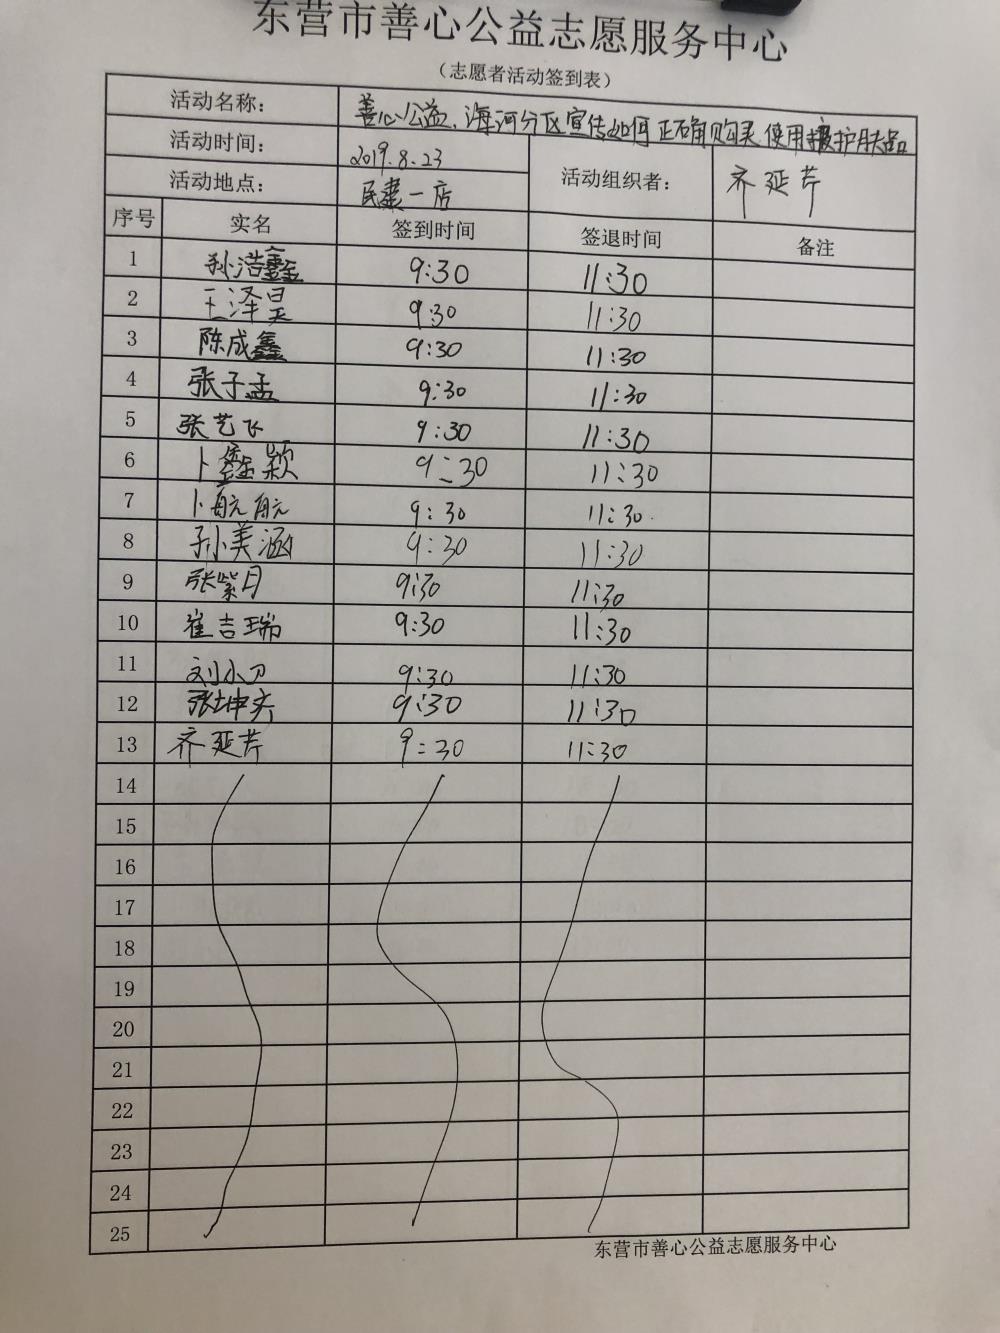 东营市善心公益志愿服务中心
（志愿者活动签到表）
活动名称： 善心公益、海河分区宣传如何正确购买使用护肤品
活动时间： 2019.8.23 活动组织者： 齐延芹
活动地点： 民建一店
序号 实名 签到时间 签退时间 备注
1 孙浩鑫 9:30 11:30
2 王泽昊 9:30 11:30
3 陈成鑫 9:30 11:30
4 张子孟 9:30 11:30
5 张艺飞 9:30 11:30
6 卜鑫颖 9:30 11:30
7 卜航航 9:30 11:30
8 孙美涵 9:30 11:30
9 张紫月 9:30 11:30
10 崔吉瑞 9:30 11:30
11 刘小刀 9:30 11:30
12 张坤齐 9:30 11:30
13 齐延芹 9:30 11:30
14
15
16
17
18
19
20
21
22
23
24
25
东营市善心公益志愿服务中心